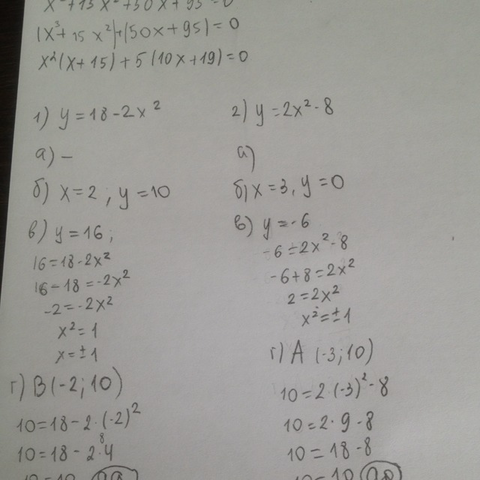 x³+15x²+50x+95=0
(x³+15x²)+(50x+95)=0
x²(x+15)+5(10x+19)=0
1) y=18-2x²
а) –
б) x=2; y=10
в) y=16;
16=18-2x²
16-18=-2x²
-2=-2x²
x²=1
x=±1
г) B(-2;10)
10=18-2·(-2)²
10=18-2·4
8
10=10
2) y=2x²-8
а)
б) x=3, y=0
в) y=-6
-6=2x²-8
-6+8=2x²
2=2x²
x²=±1
г) A(-3;10)
10=2·(-3)²-8
10=2·9-8
10=18-8
10=10